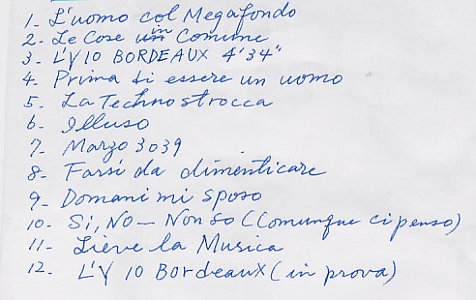 1. L'uomo col Megafondo
2. Le Cose in Comune
3. L'Y10 BORDEAUX 4'34"
4. Prima di essere un uomo
5. La Technostrocca
6. Illuso
7. Marzo 3039
8. Farsi da dimenticare
9. Domani mi sposo
10. Si, NO - Non So (Comunque ci penso)
11. Lieve la Musica
12. L'Y 10 Bordeaux (in prova)